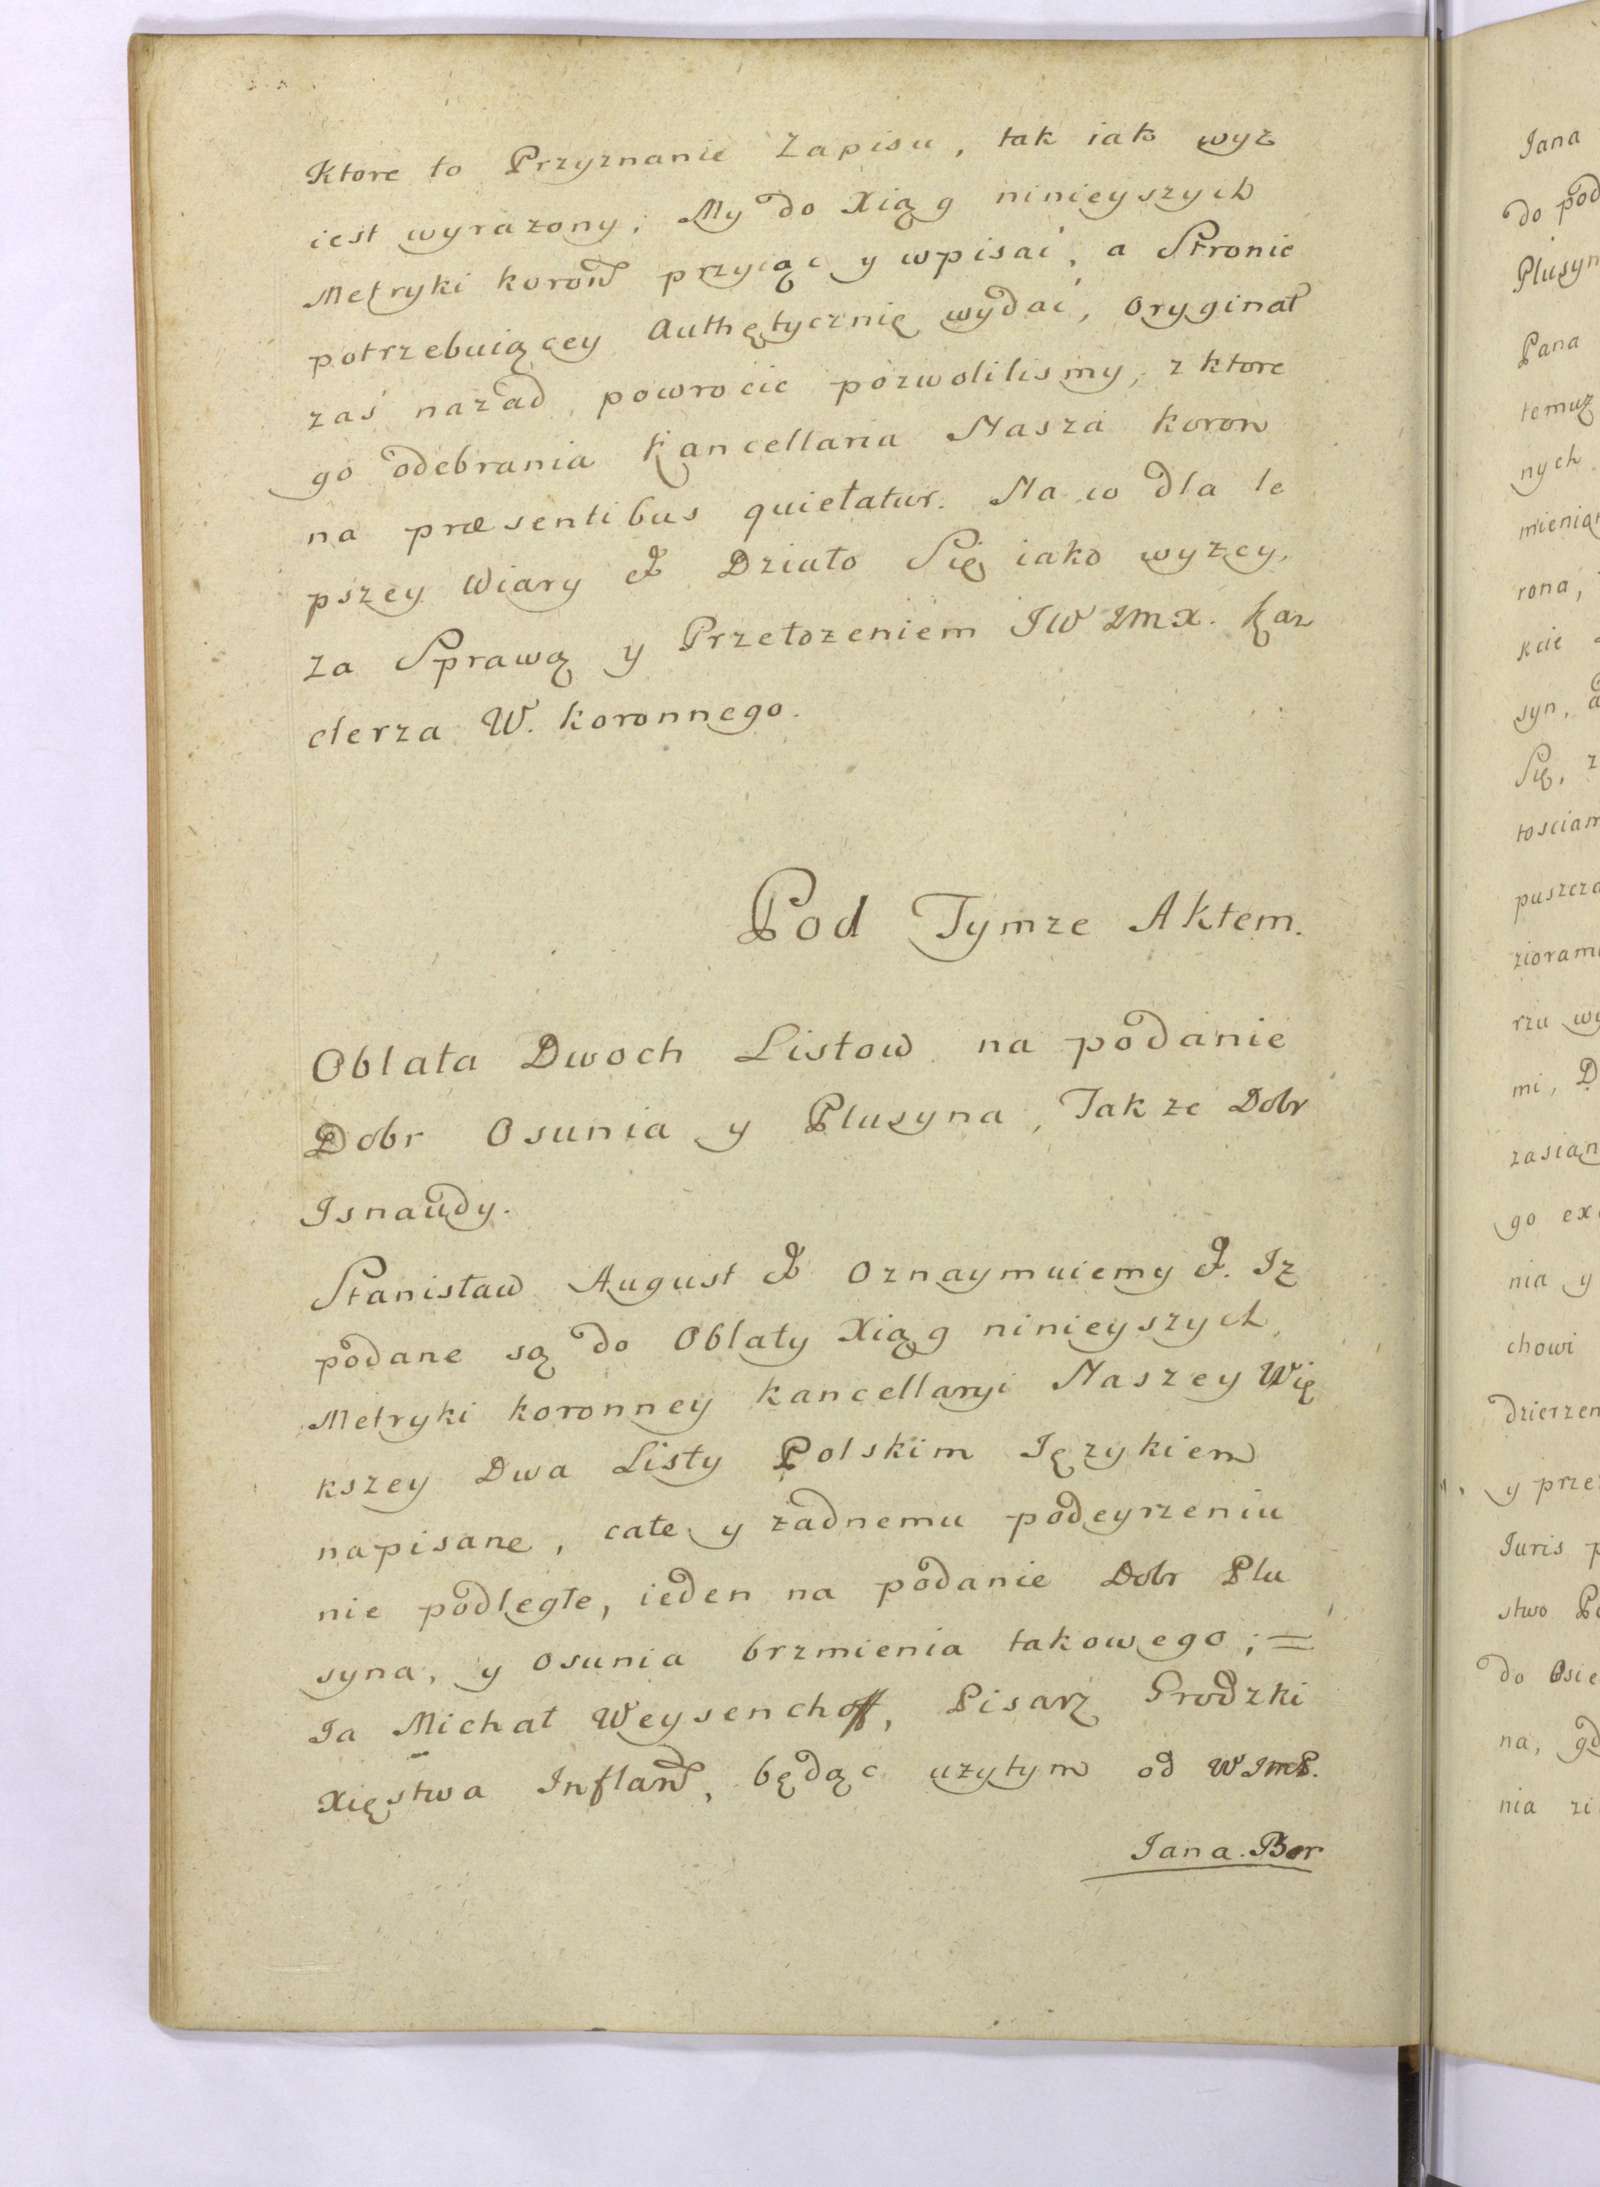 Ktore to Przyznanie Zapisu, tak iako wyz
iest wyrazony, My do Xiąg ninieyszych
Metryki koron przyiąc y wpisać, a Stronie
potrzebuiącey Authętycznię wydać, oryginał
zaś nazad powrocic pozwolilismy, z ktore
go odebrania Kancellaria Nasza koron
na præsentibus quietatur. Na co dla le
pszey Wiary &. Działo Się iako wyzey,
za Sprawą y Przełozeniem JW JMX. Kan
clerza W. koronnego.
Pod Tymze Aktem.
Oblata Dwoch Listow na podanie
Dobr Osunia y Plusyna, Takze Dobr
Isnaudy.
Stanisław August & Oznaymuiemy &. Iz
podane są do Oblaty Xiąg ninieyszych,
Metryki koronney kancellaryi Naszey Wię
kszey Dwa Listy Polskim Językiem
napisane, całe y żadnemu podeyrzeniu
nie podległe, ieden na podanie Dobr Plu
syna, y Osunia brzmienia takowego; =
Ja Michał Weysenchoff, Pisarz Grodzki
Xięstwa Inflan, będąc uzytym od WJmP.
Jana Bor
Jana
do pod
Plusyn
Pana
temuz
nych
mienian
rona,
kcie
syn, a
Się, z
tosciam
puszcza
zioram
rzu wy
mi, D
zasian
go ex
nia y
chowi
dzierzen
y prze
Juris p
stwo Po
do Osie
na, gd
nia zi